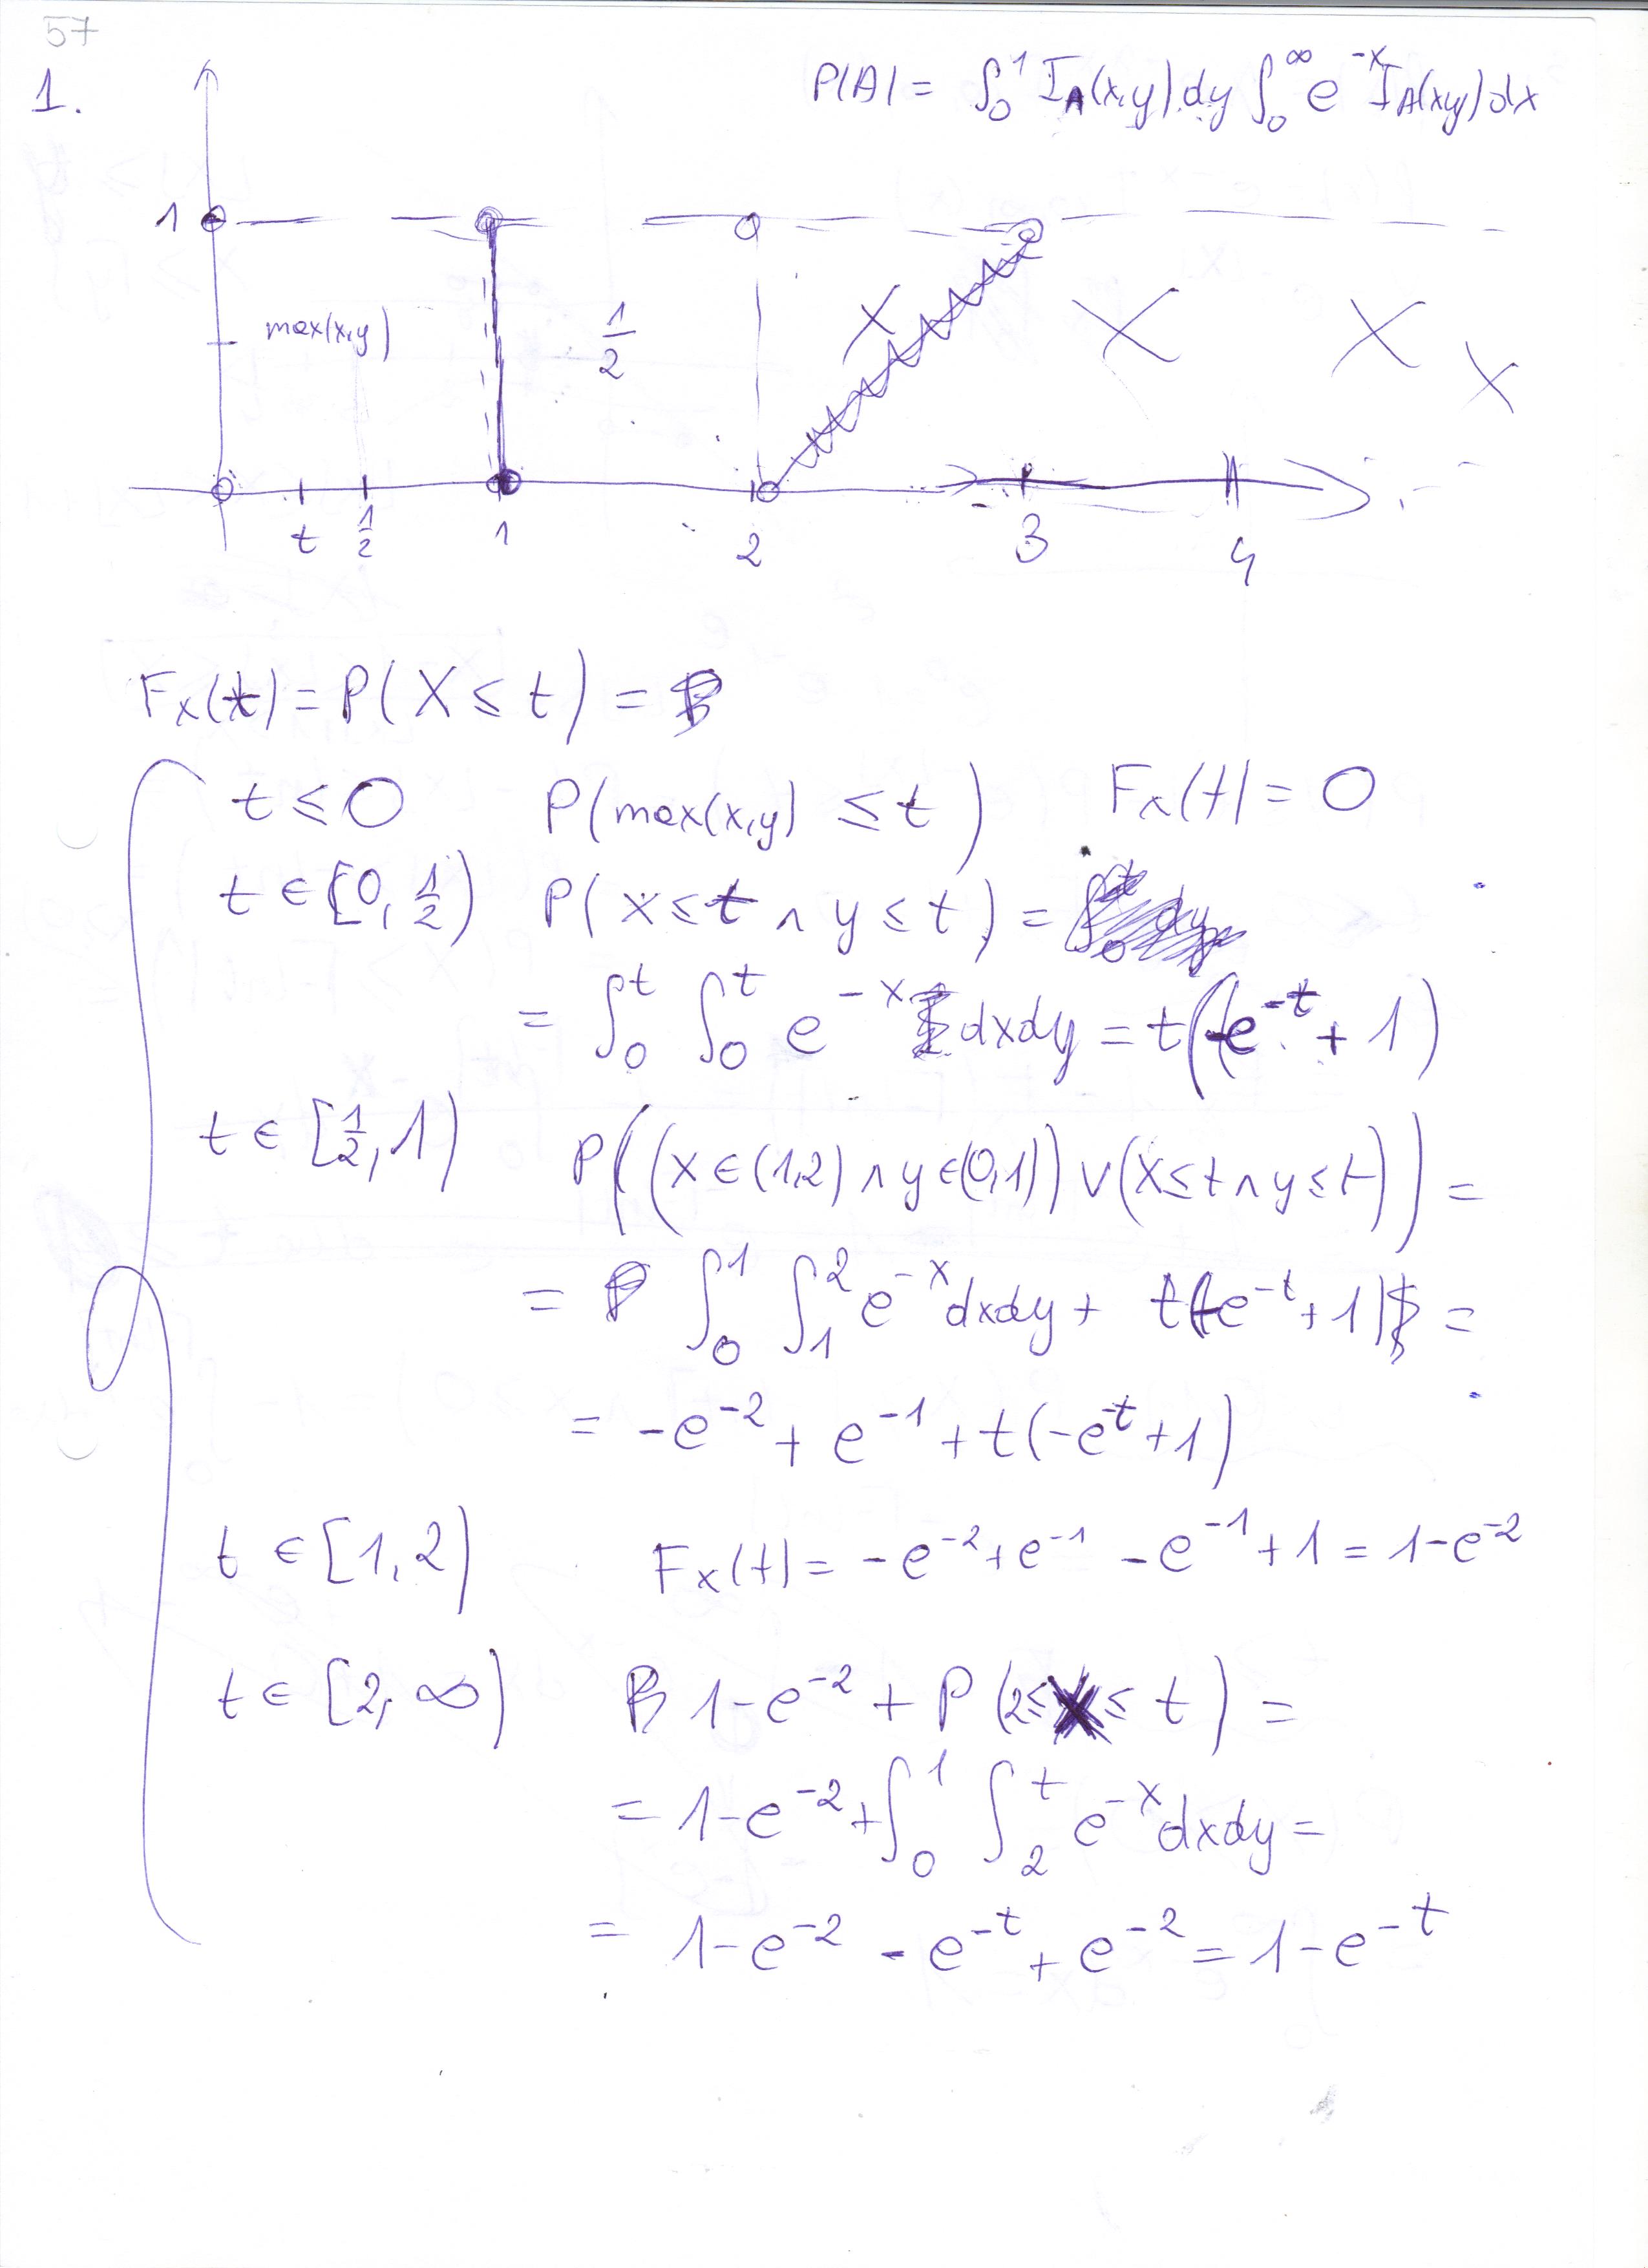 57
1.
P(A) = ∫₀¹ I_A(x,y) dy ∫₀^∞ e^{-x} I_A(xy) dx
1
max(x,y)
1/2
X X X X
t 1/2 1 2 3 4
F_X(t) = P(X ≤ t) =
t ≤ 0 P(max(x,y) ≤ t) F_X(t) = 0
t ∈ [0, 1/2) P(x ≤ t ∧ y ≤ t) =
= ∫₀^t ∫₀^t e^{-x} dxdy = t(-e^{-t} + 1)
t ∈ [1/2, 1) P((x ∈ (1,2) ∧ y ∈ (0,1)) ∨ (x ≤ t ∧ y ≤ t)) =
= ∫₀¹ ∫₁² e^{-x} dxdy + t(-e^{-t} + 1) =
= -e^{-2} + e^{-1} + t(-e^{-t} + 1)
t ∈ [1,2) F_X(t) = -e^{-2} + e^{-1} - e^{-1} + 1 = 1 - e^{-2}
t ∈ [2, ∞) 1 - e^{-2} + P(2 ≤ X ≤ t) =
= 1 - e^{-2} + ∫₀¹ ∫₂^t e^{-x} dxdy =
= 1 - e^{-2} - e^{-t} + e^{-2} = 1 - e^{-t}